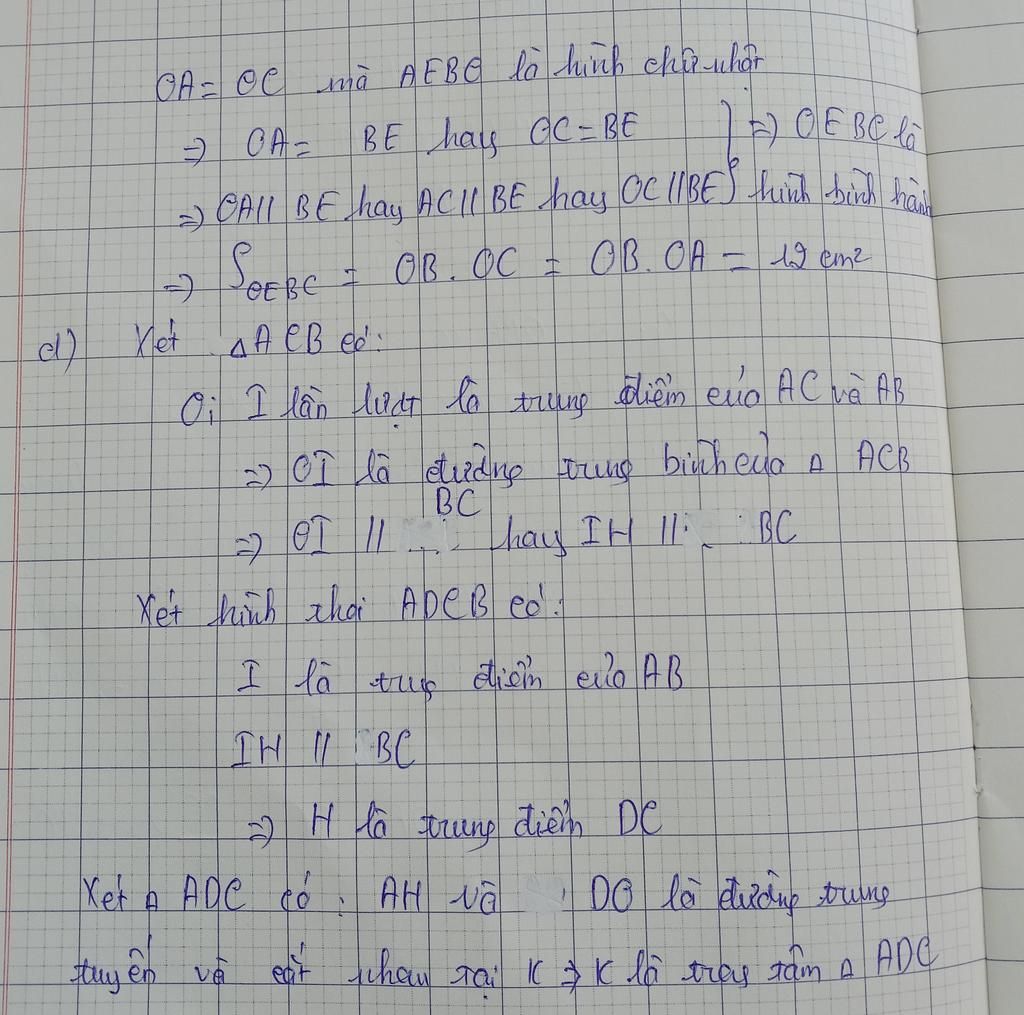 OA = OC mà AEBO là hình chữ nhật
⇒ OA = BE hay OC = BE } ⇒ OEBC là
⇒ OA // BE hay AC // BE hay OC // BE } hình bình hành
⇒ S_OEBC = OB . OC = OB . OA = 12 cm²
d) Xét △ACB có:
O; I lần lượt là trung điểm của AC và AB
⇒ OI là đường trung bình của △ ACB
BC
⇒ OI // ... hay IH // BC
Xét hình thoi ADCB có:
I là trug điểm của AB
IH // BC
⇒ H là trung điểm DC
Xét △ ADC có: AH và DO là đường trung
tuyến và cắt nhau tại K ⇒ K là trọg tâm △ ADC